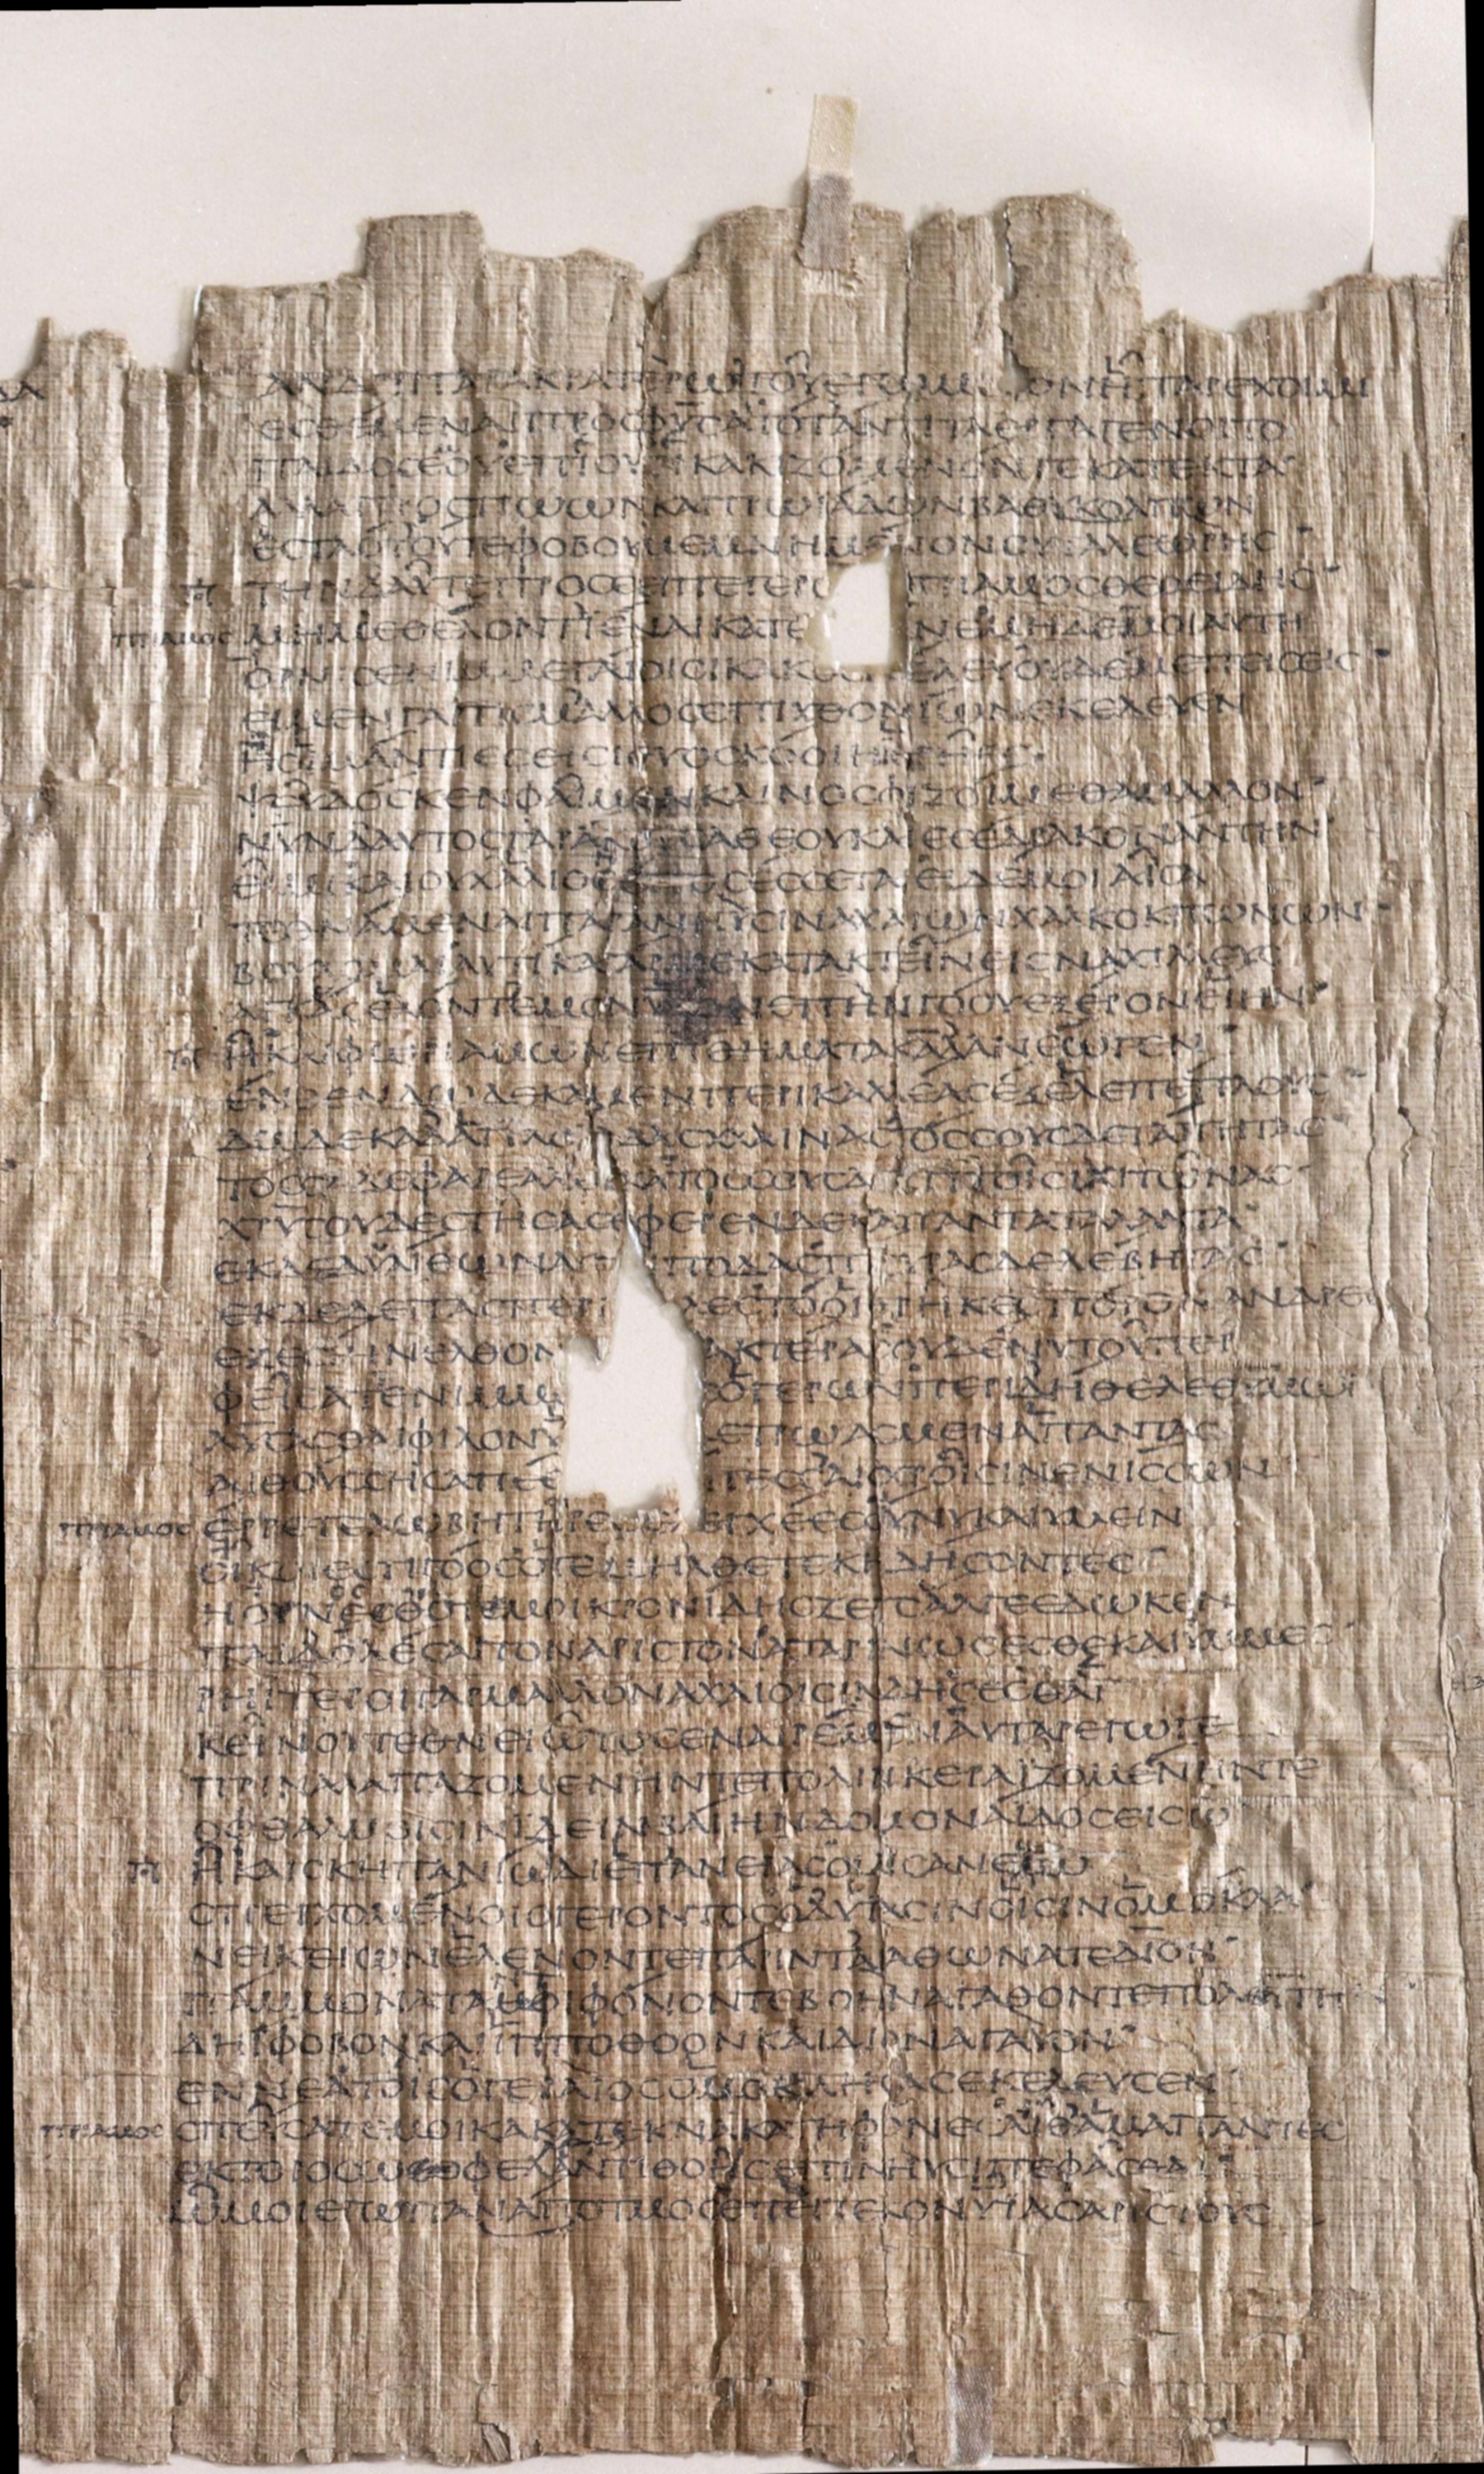 ΑΝΔΡΙΠΑΡΑΚΡΑΤΕΡΩΙΤΟΥΕΓΩΜΕ ΟΝΗΠΑΡΕΧΟΙΜΙ
ΕϹΘΕΜΕΝΑΙΠΡΟϹΦΥϹΑΤΟΤΑΝΤΙΤΑΕΡΓΑΓΕΝΟΙΤΟ
ΠΑΙΔΟϹΕΟΥΕΠΙΟΥΕΚΑΚΙΖΟΜΕΝΟΝΓΕΚΑΤΕΚΤΑ
ΑΛΛΑΠΡΟϹΤΡΩΩΝΚΑΙΤΡΩΙΑΔΩΝΒΑΘΥΚΟΛΠΩΝ
ΕϹΤΑΟΤΟΥΤΕΦΟΒΟΥΜΕΜΝΗΜΕΝΟΝΟΥΤΑΛΕΩΡΗϹ
ΤΗΝΔΑΥΤΕΠΡΟϹΕΕΙΠΕΓΕΡΩ ΠΡΙΑΜΟϹΘΕΟΕΙΔΗϹ
ΠΡΙΑΜΟϹ ΜΗΜΕΘΕΛΟΝΤΙΕΝΑΙΚΑΤΕ ΝΕΜΗΔΕΜΟΙΑΥΤΗ
ΟΡΝΙϹΕΝΙΜΜΕΓΑΡΟΙϹΙΚΑΚΟϹ ΕΛΕΥΟΥΔΕΜΕΠΕΙϹΕΙϹ
ΕΙΜΕΝΓΑΡΤΙϹΜΑΛΛΟϹΕΠΙΧΘΟΝΙΩΝΕΚΕΛΕΥΕΝ
ΗΟΙΜΑΝΤΙΕϹΕΙϹΙΘΥΟϹΚΟΟΙΗΙΕΡΗΕϹ
ΨΕΥΔΟϹΚΕΝΦΑΙΜΕΝΚΑΙΝΟϹΦΙΖΟΙΜΕΘΑΜΑΛΛΟΝ
ΝΥΝΔΑΥΤΟϹΓΑΡΑΚΟΥϹΑΘΕΟΥΚΑΙΕϹΕΔΡΑΚΟΝΑΝΤΗΝ
ΕΙΜΙΚΑΙΟΥΧΑΛΙΟΝΕΠΟϹΕϹϹΕΤΑΙΕΙΔΕΜΟΙΑΙϹΑ
ΤΕΘΝΑΜΕΝΑΙΠΑΡΑΝΗΥϹΙΝΑΧΑΙΩΝΧΑΛΚΟΚΙΤΩΝΩΝ
ΒΟΥΛΟΜΑΙΑΥΤΙΚΑΓΑΡΜΕΚΑΤΑΚΤΕΙΝΕΙΕΝΑΧΙΛΛΕΥϹ
ΑΓΚΑϹΕΛΟΝΤΕΜΟΝΥΙΟΝΕΠΗΝΓΟΟΥΕΞΕΡΟΝΕΙΗΝ
ΗΚΑΙΦΩΡΙΑΜΩΝΕΠΙΘΗΜΑΤΑΚΑΛΑΝΕΩΓΕΝ
ΕΝΘΕΝΔΩΔΕΚΑΜΕΝΠΕΡΙΚΑΛΛΕΑϹΕΞΕΛΕΠΕΠΛΟΥϹ
ΔΩΔΕΚΑΔΑΠΛΟΙΔΑϹΧΛΑΙΝΑϹΤΟϹϹΟΥϹΔΕΤΑΠΗΤΑϹ
ΤΟϹϹΑΔΕΦΑΡΕΑΚΑΛΑΤΟϹϹΟΥϹΔΕΠΙΤΟΙϹΙΧΙΤΩΝΑϹ
ΧΡΥϹΟΥΔΕϹΤΗϹΑϹΕΦΕΡΕΝΔΕΚΑΠΑΝΤΑΤΑΛΑΝΤΑ
ΕΚΔΕΔΥΑΙΘΩΝΑϹΤΡΙΠΟΔΑϹΠΙϹΥΡΑϹΔΕΛΕΒΗΤΑϹ
ΕΚΔΕΔΕΠΑϹΠΕΡΙ ΛΕϹΤΟΟΙΘΡΗΙΚΕϹΠΟΡΟΝΑΝΔΡΕϹ
ΕΞΕϹΙΗΝΕΛΘΟΝ ΑΚΤΕΡΑϹΟΥΔΕΝΥΤΟΥΠΕΡ
ΦΕΙϹΑΤΕΝΙΜΜ ΟΓΕΡΩΝΠΕΡΙΔΗΘΕΛΕΘΥΜΩΙ
ΛΥϹΑϹΘΑΙΦΙΛΟΝΥ ΔΕΤΡΩΑϹΜΕΝΑΠΑΝΤΑϹ
ΑΙΘΟΥϹϹΗϹΑΠΕΕ ΠΕϹϹΑΙϹΧΡΟΙϹΙΝΕΝΙϹϹΩΝ
ΠΡΙΑΜΟϹ ΕΡΡΕΤΕΛΩΒΗΤΗΡΕϹΕΛΕΓΧΕΕϹΟΥΝΥΚΑΙΥΜΕΙΝ
ΟΙΚΟΙΕϹΤΙΓΟΟϹΟΤΕΜΗΛΘΕΤΕΚΗΔΗϹΟΝΤΕϹ
ΗΟΥΝΕϹΘΟΤΙΜΟΙΚΡΟΝΙΔΗϹΖΕΥϹΑΛΓΕΕΔΩΚΕΝ
ΠΑΙΔΟΛΕϹΑΙΤΟΝΑΡΙϹΤΟΝΑΤΑΡΓΝΩϹΕϹΘΕΚΑΙΥΜΜΕϹ
ΡΗΙΤΕΡΟΙΓΑΡΜΑΛΛΟΝΑΧΑΙΟΙϹΙΝΔΗΕϹΕϹΘΑΙ
ΚΕΙΝΟΥΤΕΘΝΕΙΩΤΟϹΕΝΑΙΡΕΜΕΝΑΥΤΑΡΕΓΩΓΕ
ΠΡΙΝΑΛΑΠΑΖΟΜΕΝΗΝΤΕΠΟΛΙΝΚΕΡΑΙΖΟΜΕΝΗΝΤΕ
ΟΦΘΑΛΜΟΙϹΙΝΙΔΕΙΝΒΑΙΗΝΔΟΜΟΝΑΙΔΟϹΕΙϹΩ
ΗΚΑΙϹΚΗΠΑΝΙΩΔΙΕΠΑΝΕΡΑϹΟΙΔΙϹΑΝΕΞΩ
ϹΠΕΡΧΟΜΕΝΟΙΟΓΕΡΟΝΤΟϹΟΔΥΙΑϹΙΝΟΙϹΙΝΟΜΟΚΛΑ
ΝΕΙΚΕΙΩΝΕΛΕΝΟΝΤΕΠΑΡΙΝΤΑΓΑΘΩΝΑΤΕΔΙΟΝ
ΠΑΜΜΟΝΑΤΑΝΤΙΦΟΝΟΝΤΕΒΟΗΝΑΓΑΘΟΝΤΕΠΟΛΕΙΤΗΝ
ΔΗΙΦΟΒΟΝΚΑΙΙΠΠΟΘΟΟΝΚΑΙΔΙΟΝΑΓΑΥΟΝ
ΕΝΝΕΑΤΟΙϹΟΓΕΡΑΙΟϹΟΜΟΚΛΗϹΑϹΕΚΕΛΕΥϹΕΝ
ΠΡΙΑΜΟϹ ϹΠΕΥϹΑΤΕΜΟΙΚΑΚΑΤΕΚΝΑΚΑΤΗΦΟΝΕϹΑΙΘΑΜΑΠΑΝΤΕϹ
ΕΚΤΟΡΟϹΩΦΕΛΕΤΑΝΤΙΘΟΗϹΕΠΙΝΗΥϹΙΠΕΦΑϹΘΑΙ
ΩΜΟΙΕΓΩΠΑΝΑΠΟΤΜΟϹΕΠΕΙΤΕΚΟΝΥΙΑϹΑΡΙϹΤΟΥϹ